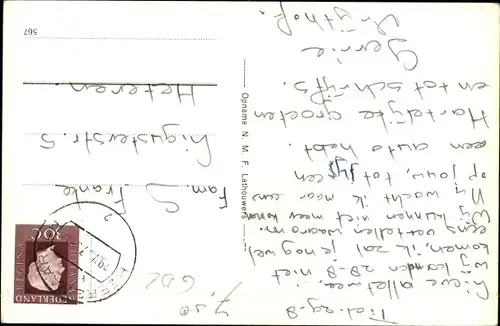 Tiel, 29-8
Lieve allemae...
Wij kanden 28-8 niet
komen, ik zal je nog wel
eens vertellen waarom.
Wij kunnen niet meer komen
Nu wacht ik maar eens
op jouw, tot jij een
een auto hebt.
Hartelijke groeten
en tot schrijfs.
Gerrie
Opname N. M. F. Lathouwers
567
Fam. S. Franke
Ligusterstr. 5
Heteren.
NEDERLAND
JULIANA REGINA
30C
7,50